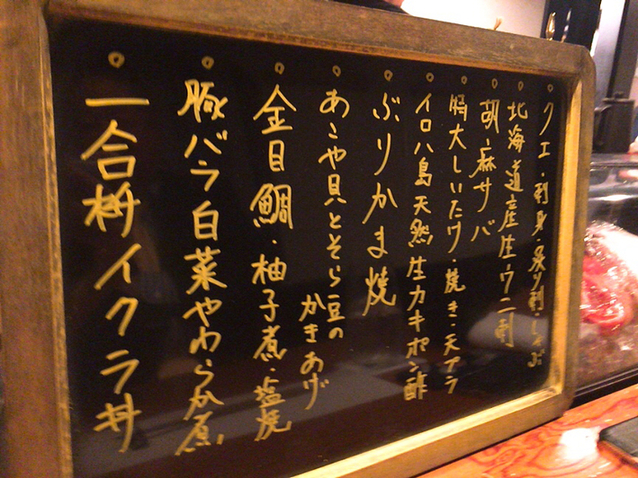 クエ・刺身・炙り刺・しゃぶ
北海道産生ウニ刺
胡麻サバ
特大しいたけ・焼き・天プラ
イロハ島天然生カキポン酢
ぶりかま焼
あこや貝とそら豆の
かきあげ
金目鯛・柚子煮・塩焼
豚バラ白菜やわらか煮
一合枡イクラ丼